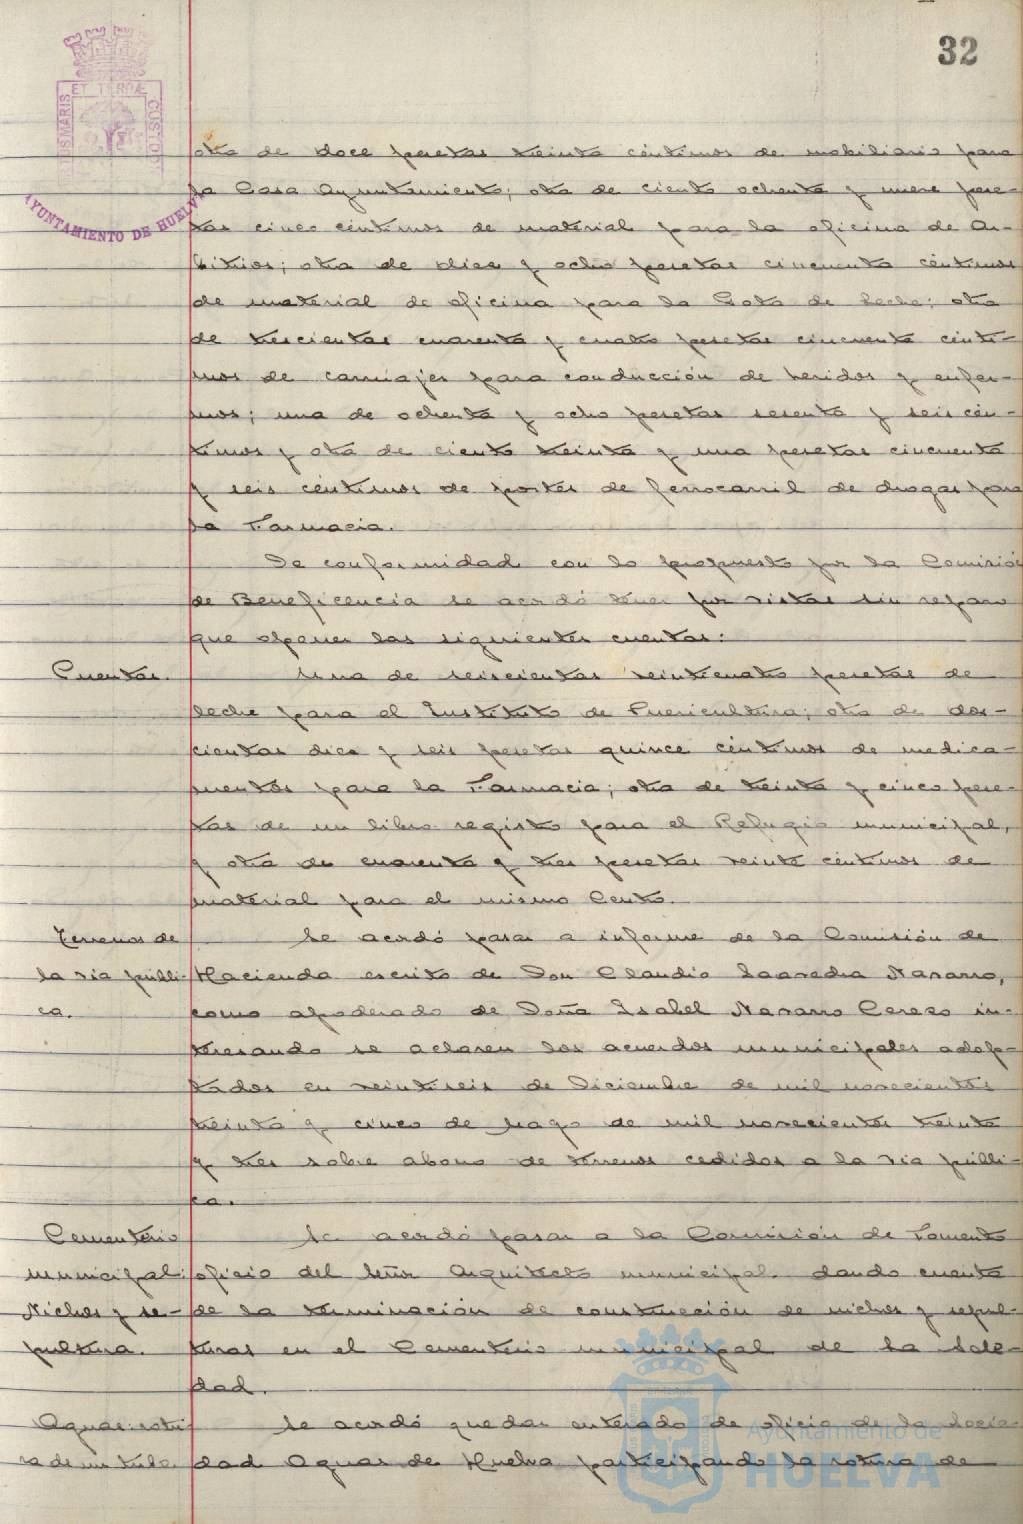 32
ET TERRÆ
US MARIS
CUSTOD
AYUNTAMIENTO DE HUELVA
otra de doce pesetas treinta céntimos de mobiliario para
la Casa Ayuntamiento; otra de ciento ochenta y nueve pese-
tas cinco céntimos de material para la oficina de Ar-
bitrios; otra de diez y ocho pesetas cincuenta céntimos
de material de oficina para la Gota de leche; otra
de trescientas cuarenta y cuatro pesetas cincuenta cénti-
mos de carruajes para conducción de heridos y enfer-
mos; una de ochenta y ocho pesetas sesenta y seis cén-
timos y otra de ciento treinta y una pesetas cincuenta
y seis céntimos de portes de ferrocarril de drogas para
la Farmacia.
De conformidad con lo propuesto por la Comisión
de Beneficencia se acordó tener por vistas sin reparo
que oponer las siguientes cuentas:
Cuentas.
Una de seiscientas veinticuatro pesetas de
leche para el Instituto de Puericultura; otra de dos-
cientas diez y seis pesetas quince céntimos de medica-
mentos para la Farmacia; otra de treinta y cinco pese-
tas de un libro registro para el Refugio municipal,
y otra de cuarenta y tres pesetas veinte céntimos de
material para el mismo Centro.
Terrenos de
la via públi-
ca.
Se acordó pasar a informe de la Comisión de
Hacienda escrito de Don Claudio Saavedra Navarro,
como apoderado de Doña Isabel Navarro Cerezo in-
teresando se aclaren los acuerdos municipales adop-
tados en veintiseis de Diciembre de mil novecientos
treinta y cinco de pago de mil novecientos treinta
y tres sobre abono de terrenos cedidos a la via públi-
ca.
Cementerio
municipal:
Nichos y se-
pultura.
Se acordó pasar a la Comisión de Fomento
oficio del Señor Arquitecto municipal dando cuenta
de la terminación de construcción de nichos y sepul-
turas en el Cementerio municipal de la Sole-
dad.
Aguas: rotu-
ra de un tubo
Se acordó quedar enterado de oficio de la Socie-
dad Aguas de Huelva participando la rotura de
Ayuntamiento de
HUELVA